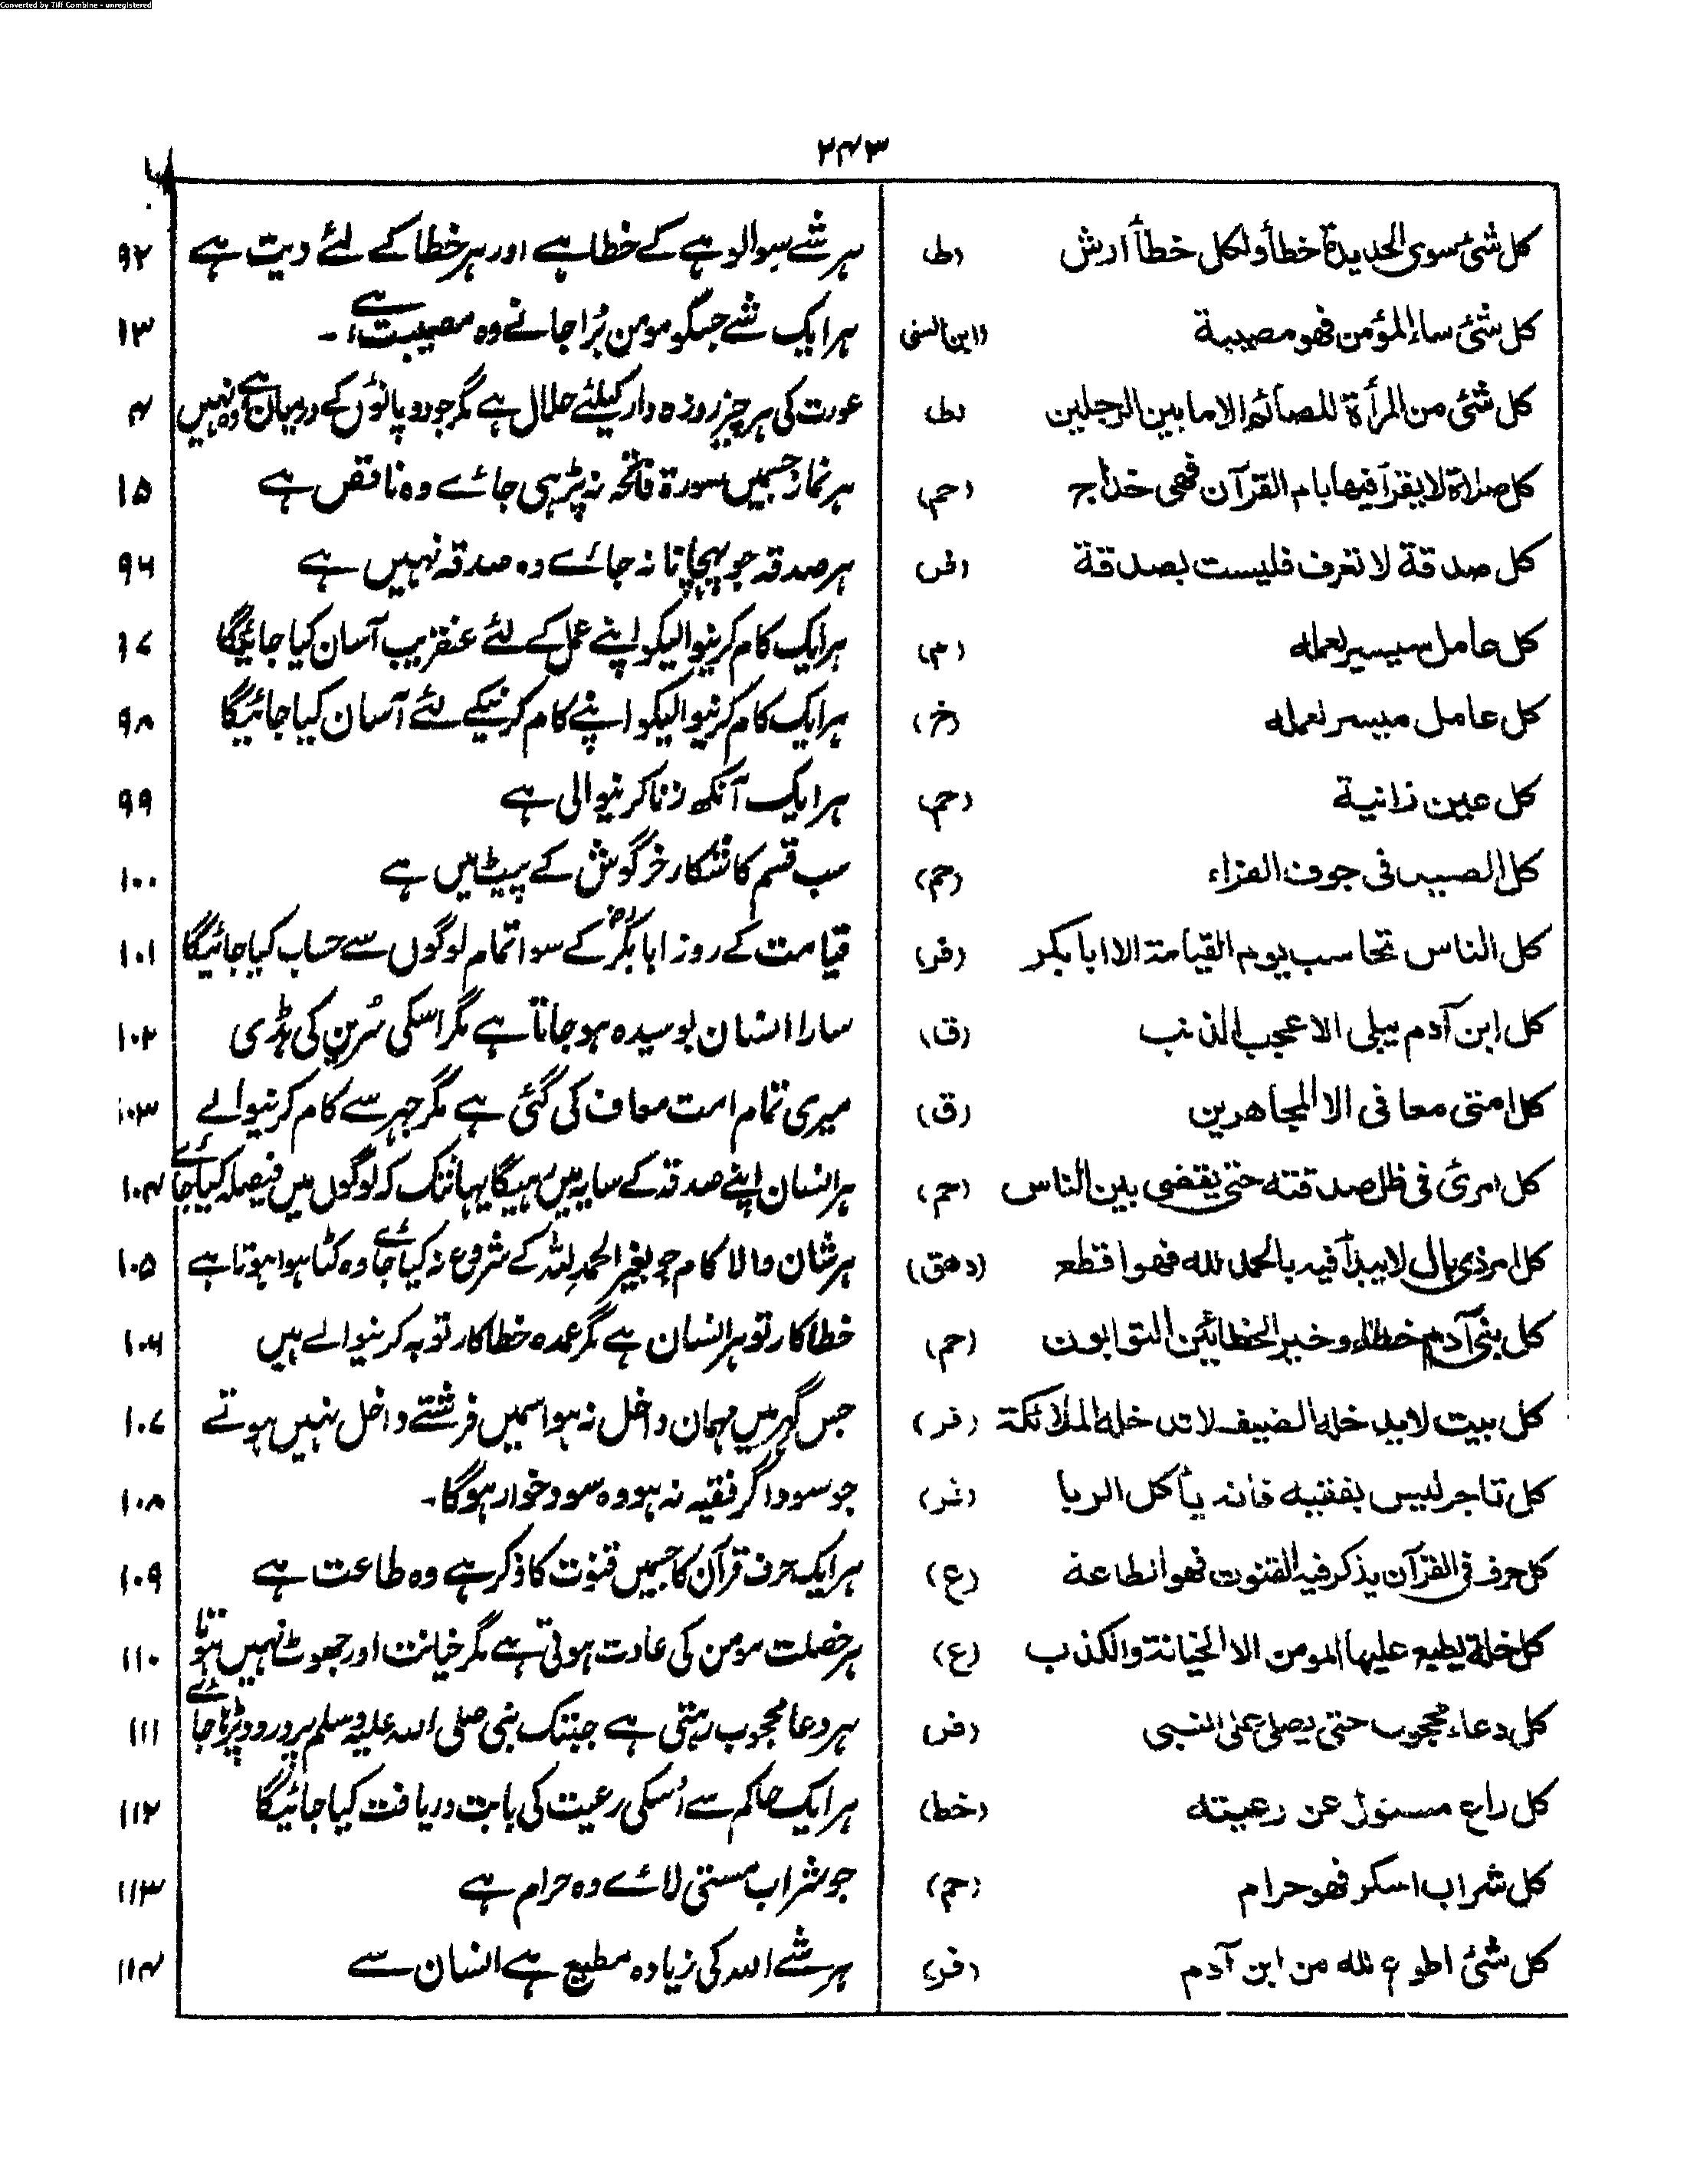 Converted by Tiff Combine - unregistered
۲۴۳
کل شئ سوی الحدیدة خطأ ولکل خطأ ارش (طی) ہر شے سوالوہے کے خطا ہے اور ہر خطا کے لئے دیت ہے ۹۲
کل شئ ساء المؤمن فهو مصیبة (ابن السنی) ہر ایک شے جسکو مومن بُرا جانے وہ مصیبت ہے ۔ ۱۳
کل شئ من المرأة للصائم الا مابین الرجلین (طی) عورت کی ہر چیز روزہ دار کیلئے حلال ہے مگر جو دو پانوٗں کے درمیان ہے وہ نہیں ۴
کل صلاة لا یقرأ فیها بام القرآن فهی خداج (حم) ہر نماز جسمیں سورۃ فاتحہ نہ پڑہی جائے وہ ناقص ہے ۱۵
کل صدقة لا تعرف فلیست بصدقة (فر) ہر صدقہ جو پہچانا نہ جائے وہ صدقہ نہیں ہے ۹۶
کل عامل سییسر لعمله (م) ہر ایک کام کرنیوالیکو اپنے عمل کے لئے عنقریب آسان کیا جائیگا ۱۷
کل عامل میسر لعمله (خ) ہر ایک کام کرنیوالیکو اپنے کام کرنیکے لئے آسان کیا جائیگا ۹۸
کل عین زانیة (حم) ہر ایک آنکھ زنا کرنیوالی ہے ۹۹
کل الصید فی جوف الفراء (حم) سب قسم کا شکار خرگوش کے پیٹ میں ہے ۱۰۰
کل الناس تحاسب یوم القیامة الا ابا بکر (فر) قیامت کے روز ابا بکرؓ کے سوا تمام لوگوں سے حساب کیا جائیگا ۱۰۱
کل ابن آدم یبلی الا عجب الذنب (ق) سارا انسان بوسیدہ ہو جاتا ہے مگر اسکی سُرین کی ہڈی ۱۰۲
کل امتی معافی الا المجاهرین (ق) میری تمام امت معاف کی گئی ہے مگر جہر سے کام کرنیوالے ۱۰۳
کل امرئ فی ظل صدقته حتی یقضی بین الناس (حم) ہر انسان اپنے صدقہ کے سایہ میں رہیگا یہانتک کہ لوگوں میں فیصلہ کیا جائے ۱۰۴
کل امر ذی بال لا یبدأ فیه بالحمد لله فهو اقطع (دهق) ہر شان والا کام جو بغیر الحمد للہ کے شروع نہ کیا جائے وہ کٹا ہوا ہوتا ہے ۱۰۵
کل بنی آدم خطاء وخیر الخطائین التوابون (حم) خطا کار تو ہر انسان ہے مگر عمدہ خطا کار توبہ کرنیوالے ہیں ۱۰۶
کل بیت لا یدخله الضیف لا تدخله الملائکة (فر) جس گہر میں مہمان داخل نہ ہو اسمیں فرشتے داخل نہیں ہوتے ۱۰۷
کل تاجر لیس بفقیه فانه یأکل الربا (فر) جو سوداگر فقیہ نہ ہو وہ سود خوار ہوگا۔ ۱۰۸
کل حرف فی القرآن یذکر فیه القنوت فهو الطاعة (ع) ہر ایک حرف قرآن کا جسمیں قنوت کا ذکر ہے وہ طاعت ہے ۱۰۹
کل خلة یطبع علیها المومن الا الخیانة والکذب (ع) ہر خصلت مومن کی عادت ہوتی ہے مگر خیانت اور جھوٹ نہیں ہوتا ۱۱۰
کل دعاء محجوب حتی یصلی علی النبی (فر) ہر دعا محجوب رہتی ہے جبتک نبی صلی اللہ علیہ وسلم پر درود پڑہا جائے ۱۱۱
کل راع مسئول عن رعیته (خط) ہر ایک حاکم سے اُسکی رعیت کی بابت دریافت کیا جائیگا ۱۱۲
کل شراب اسکر فهو حرام (حم) جو شراب مستی لائے وہ حرام ہے ۱۱۳
کل شئ اطوع لله من ابن آدم (فر) ہر شے اللہ کی زیادہ مطیع ہے انسان سے ۱۱۴